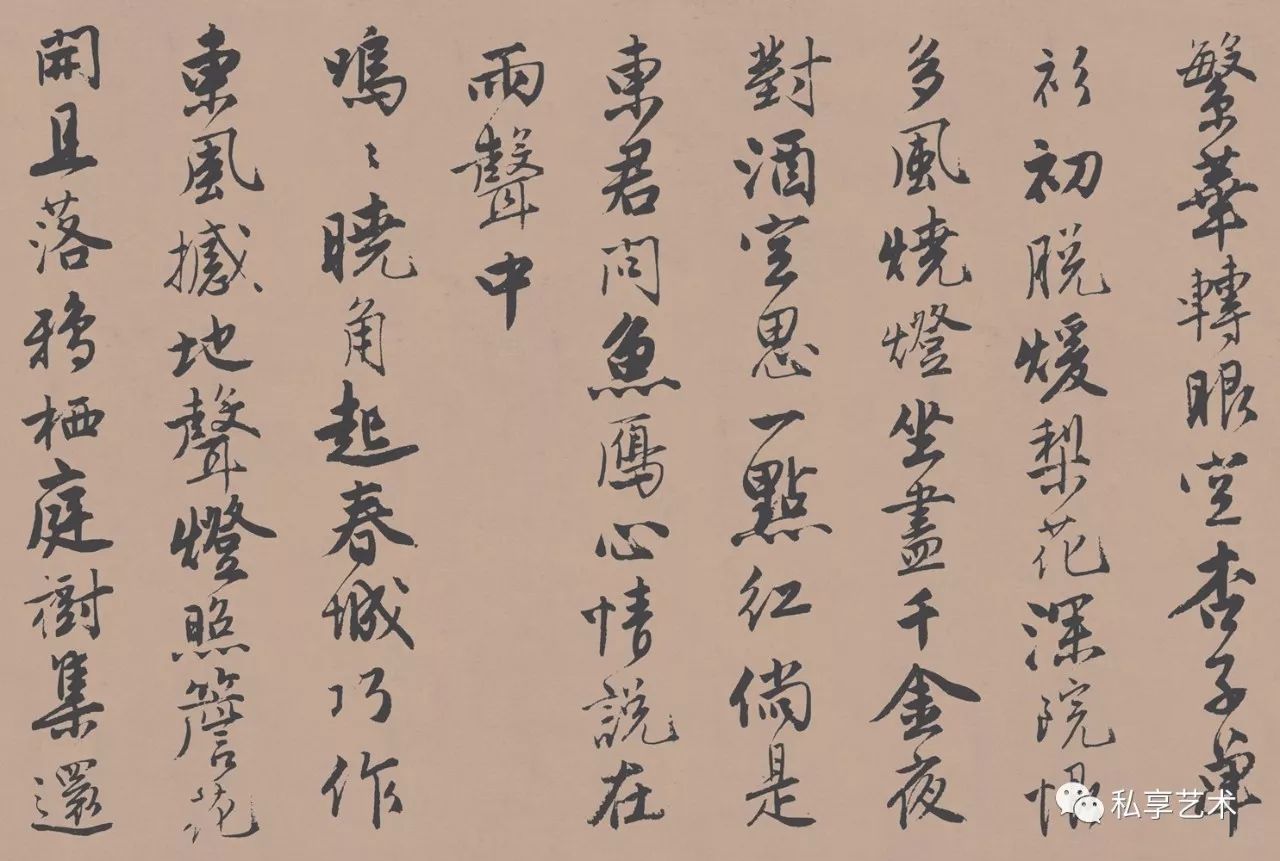 繁華轉眼空杏子單
衫初脫煖梨花深院恨
多風燒燈坐盡千金夜
對酒空思一點紅倘是
東君問魚鴈心情說在
雨聲中
嗚〻曉角起春城巧作
東風撼地聲燈照簷花
開且落鴉栖庭樹集還
私享艺术